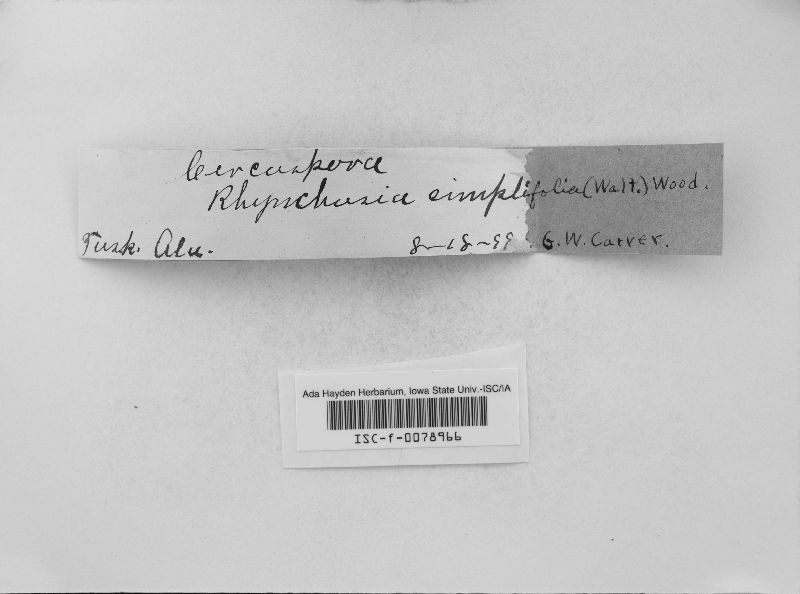 Cercospora
Rhynchosia simplifolia (Walt.) Wood.
Tusk. Ala. 8-18-99. G. W. Carver.
Ada Hayden Herbarium, Iowa State Univ.-ISC/IA
ISC-f-0078966